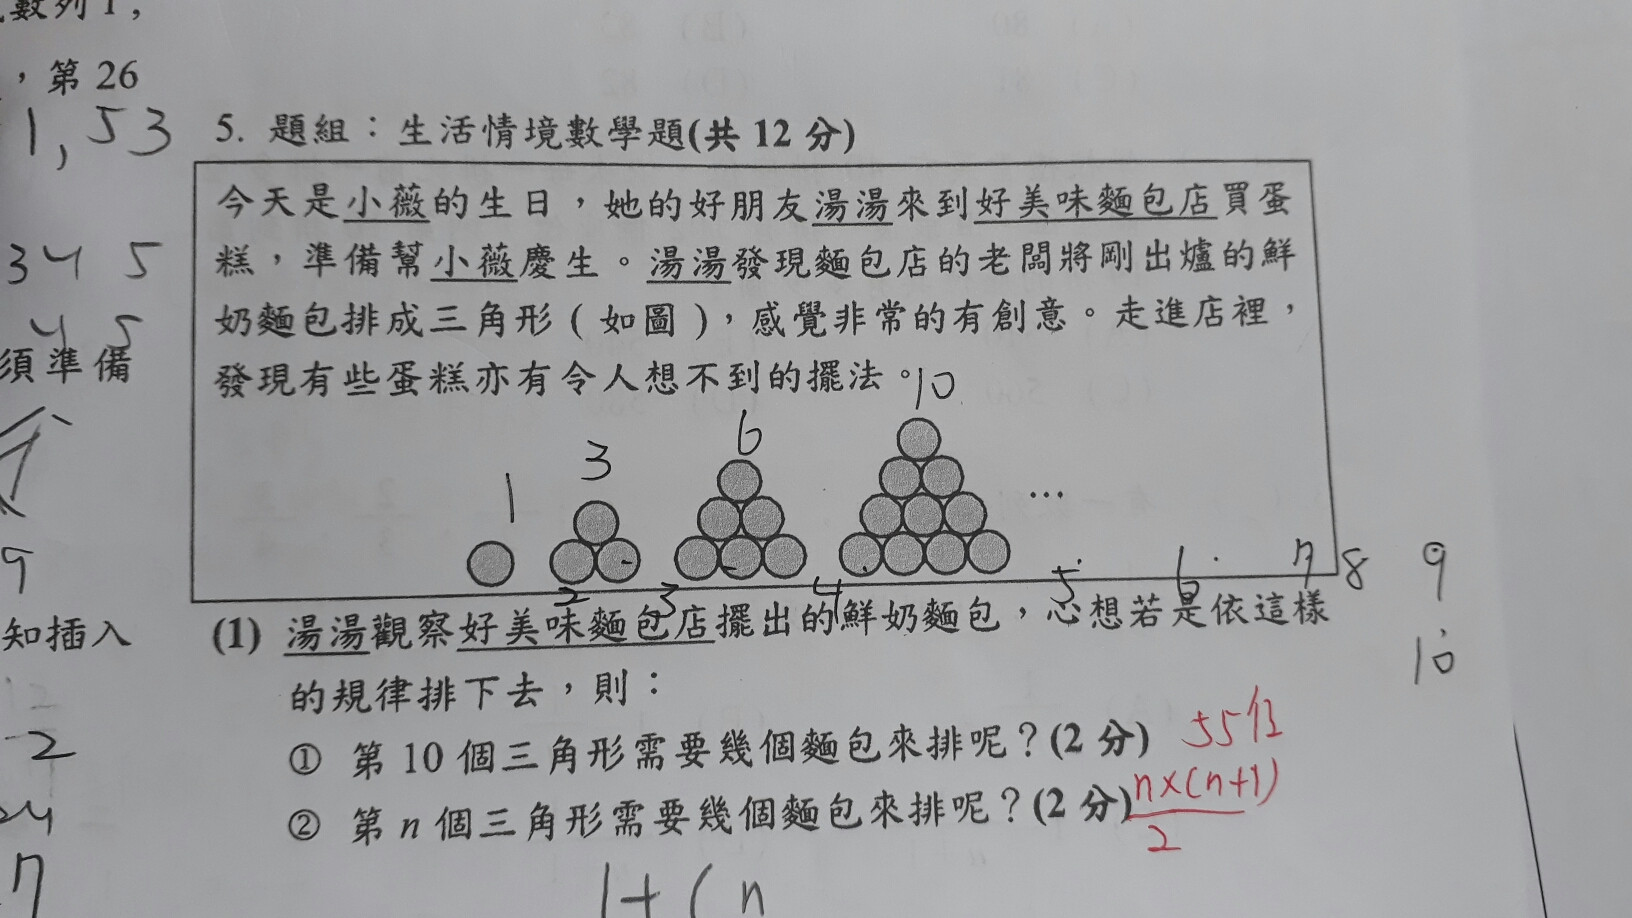 數列1,
，第 26
1, 53
3 4 5
4 5
須準備
9
知插入
12
2
24
7
5. 題組：生活情境數學題(共 12 分)
今天是小薇的生日，她的好朋友湯湯來到好美味麵包店買蛋
糕，準備幫小薇慶生。湯湯發現麵包店的老闆將剛出爐的鮮
奶麵包排成三角形(如圖)，感覺非常的有創意。走進店裡，
發現有些蛋糕亦有令人想不到的擺法。
1 3 6 10
…
2 3 4 5 6 7 8 9
10
(1) 湯湯觀察好美味麵包店擺出的鮮奶麵包，心想若是依這樣
的規律排下去，則：
① 第 10 個三角形需要幾個麵包來排呢？(2 分) 55個
② 第 n 個三角形需要幾個麵包來排呢？(2 分) n×(n+1)
2
1+(n